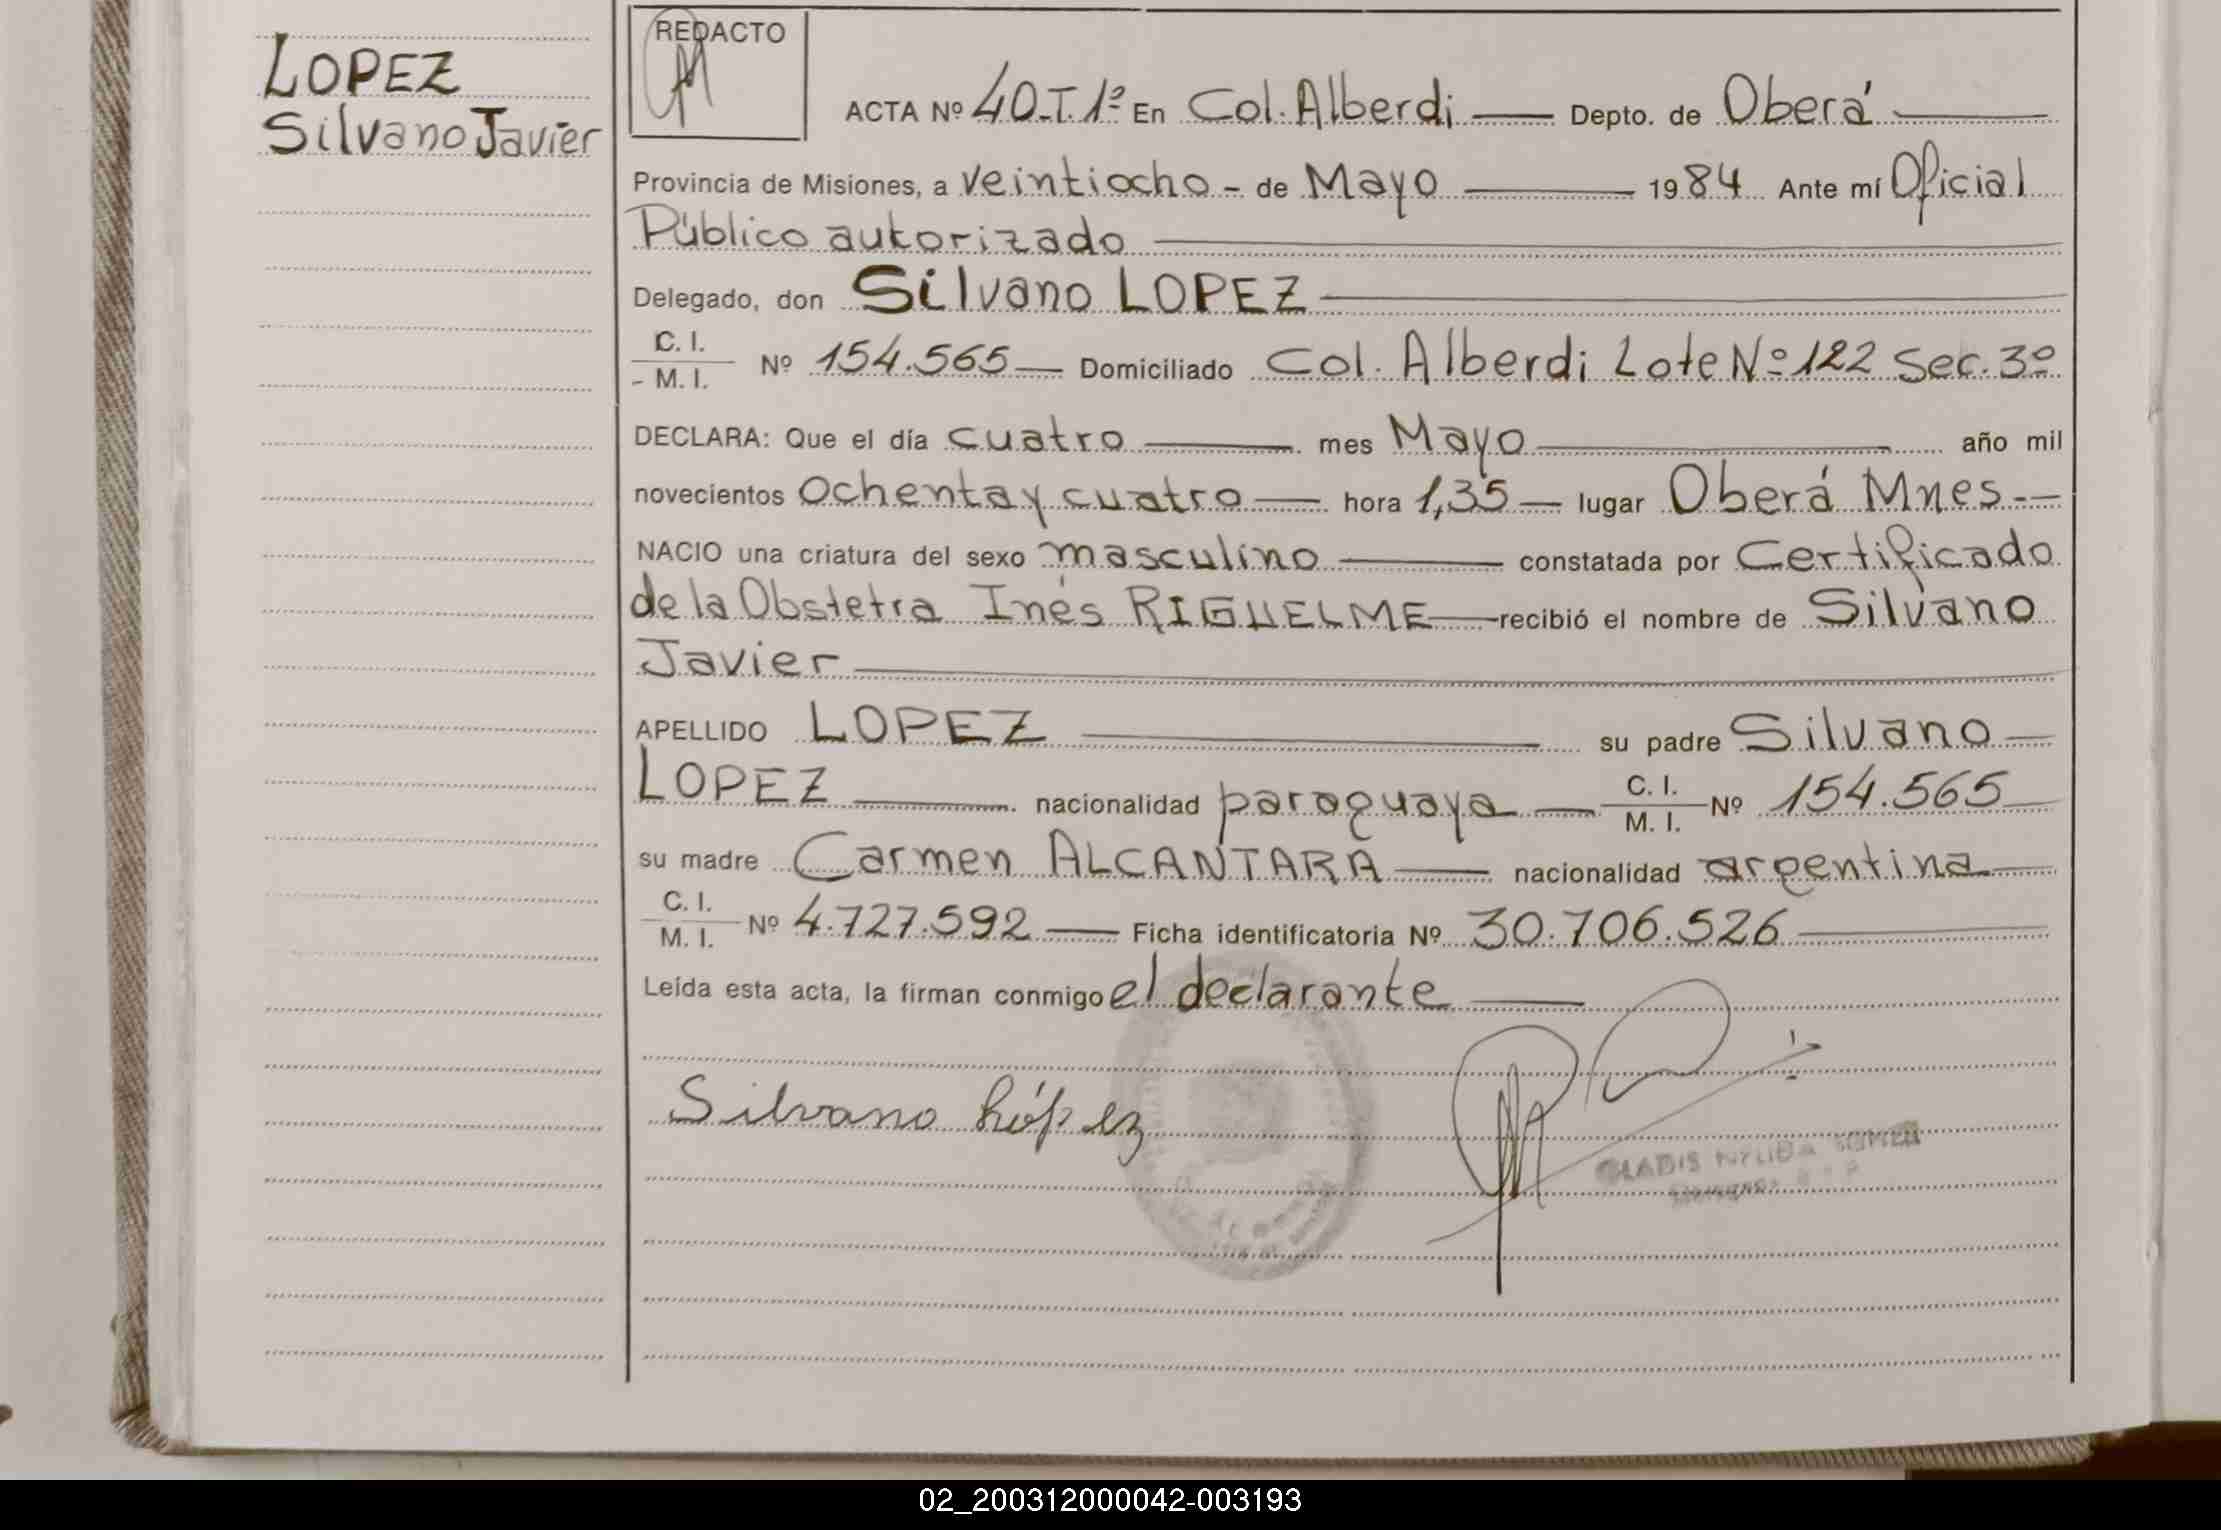 LOPEZ
Silvano Javier
REDACTO
ACTA Nº 40-T.1º En Col. Alberdi Depto. de Oberá
Provincia de Misiones, a veintiocho - de Mayo 1984 Ante mí Oficial
Público autorizado
Delegado, don Silvano LOPEZ
C. I.
- M. I. Nº 154.565 Domiciliado Col. Alberdi Lote Nº 122 Sec. 3º
DECLARA: Que el día cuatro mes Mayo año mil
novecientos Ochenta y cuatro hora 1,35 lugar Oberá Mnes.
NACIO una criatura del sexo masculino constatada por Certificado
de la Obstetra Inés RIGUELME recibió el nombre de Silvano
Javier
APELLIDO LOPEZ su padre Silvano
LOPEZ nacionalidad paraguaya C. I. M. I. Nº 154.565
su madre Carmen ALCANTARA nacionalidad argentina
C. I.
M. I. Nº 4.727.592 Ficha identificatoria Nº 30.706.526
Leída esta acta, la firman conmigo el declarante
Silvano López
GLADIS
02_200312000042-003193